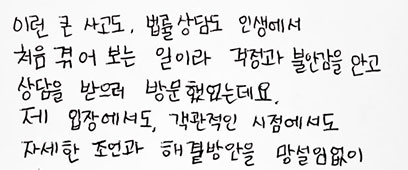 이런 큰 사고도, 법률상담도 인생에서
처음 겪어 보는 일이라 걱정과 불안감을 안고
상담을 받으러 방문했었는데요.
제 입장에서도, 객관적인 시점에서도
자세한 조언과 해결방안을 망설임없이